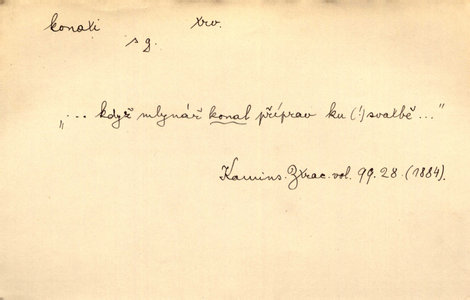 konati trv.
s g.
„... když mlynář konal příprav ku (!) svatbě..."
Kamins. Ztrac. vol. 99. 28. (1884).